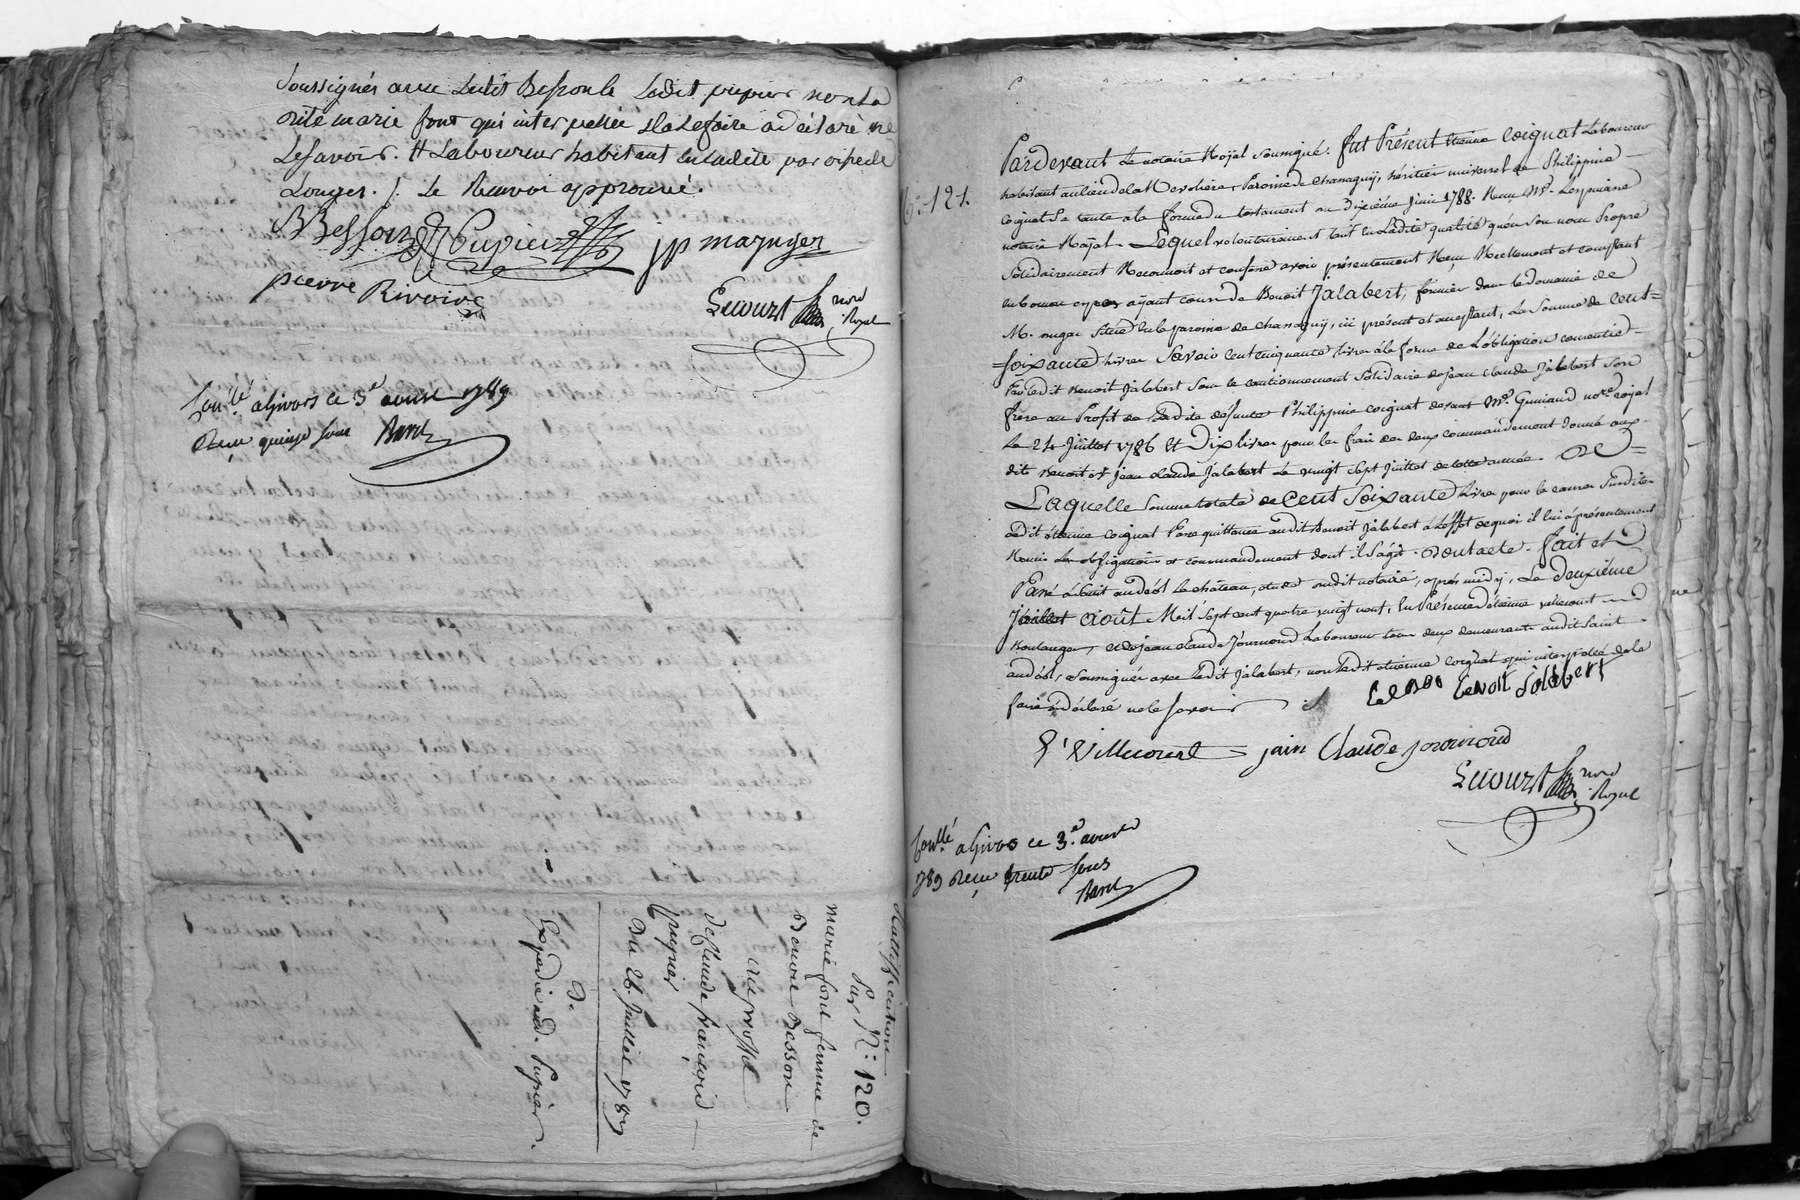 soussignés avec ledit Besson le ledit pupier non la
dite marie font qui interpellée de le faire a déclaré ne
le savoir. # Laboureur habitant en ladite paroisse de
Longes. /. Le Renvoi approuvé.
BBesson Pupier jp mazuyer
pierre Rivoire
Lecourt nore Royal
Conllé a Givors ce 3e aoust 1789
Reçu quinze sous Barel
Rattiffication
Sur N: 120.
marie font femme de
Benoit Besson
au proffit
de Claude françois
pupier
Du 26. Juillet 1789
d.
Expedié aud. Pupier.
N: 121.
Pardevant Le notaire Royal soussigné. fut Présent Etienne Coignat Laboureur
habitant au lieu de la Paroisse de Chanagny, héritier universel de Philippine
Coignat Sa tante a la forme du testament du Dixième juin 1788. Reçu Me.
notaire Royal. Lequel volontairement tant en ladite qualité qu'en son nom Propre
Solidairement Reconnoit et confesse avoir présentement Reçu Réellement et comptant
en bonnes especes ayant cours de Benoit Jalabert, fermier dans le domaine de
M. mugai Situé en la paroisse de Chanagny, ici présent et acceptant, La Somme de Cent=
=soixante livres Savoir Cent cinquante livres à la forme de L'obligation consentie
Par ledit Benoit Jalabert sous le cautionnement Solidaire de jean Claude Jalabert Son
frère au Profit de Ladite defunte Philippine Coignat devant Me. nore. royal
Le 24 Juillet 1786 Et Dix livres pour les frais des deux commandement donné aux
dits Benoit et jean claude Jalabert Le vingt sept juillet de cette année. De
Laquelle Somme totale de Cent Soixante livres pour les causes Susdites
Ledit étienne Coignat Passe quittance audit Benoit Jalabert à L'effet de quoi il lui a présentement
Remis Les obligations et commandement dont il s'agit. Dont acte. fait et
Passé à Saint andéol le château, étude dudit notaire, après midy, Le Deuxième
Juillet Août Mil Sept cent quatre vingt neuf, En Présence d'étienne villecourt
Boulanger, et de jean claude Journoud Laboureur tous deux demeurants audit Saint
andéol, Soussignés avec Ledit Jalabert, non Ledit étienne Coignat qui interpellé de le
faire a déclaré ne le savoir
Benoit Jalabert
E. Villecourt jean Claude Journoud
Lecourt nore Royal
Conllé a Givors ce 3e. aoust
1789 Reçu trente sous
Barel